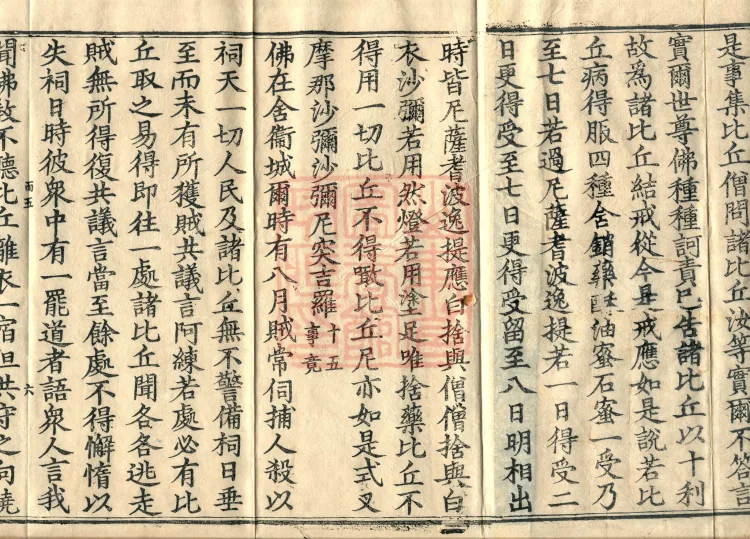 是事集比丘僧問諸比丘汝等實爾不答言
實爾世尊佛種種訶責已告諸比丘以十利
故爲諸比丘結戒從今是戒應如是說若比
丘病得服四種含銷藥酥油蜜石蜜一受乃
至七日若過尼薩耆波逸提若一日得受二
日更得受至七日更得受留至八日明相出
時皆尼薩耆波逸提應白捨與僧僧捨與白
衣沙彌若用然燈若用塗足唯捨藥比丘不
得用一切比丘不得噉比丘尼亦如是式叉
摩那沙彌沙彌尼突吉羅十五事竟
佛在舍衞城爾時有八月賊常伺捕人殺以
祠天一切人民及諸比丘無不警備祠日垂
至而未有所獲賊共議言阿練若處必有比
丘取之易得即往一處諸比丘聞各各逃走
賊無所得復共議言當至餘處不得懈惰以
失祠日時彼衆中有一罷道者語衆人言我
雨五
六
聞佛教不聽比丘離衣一宿但共守之向曉